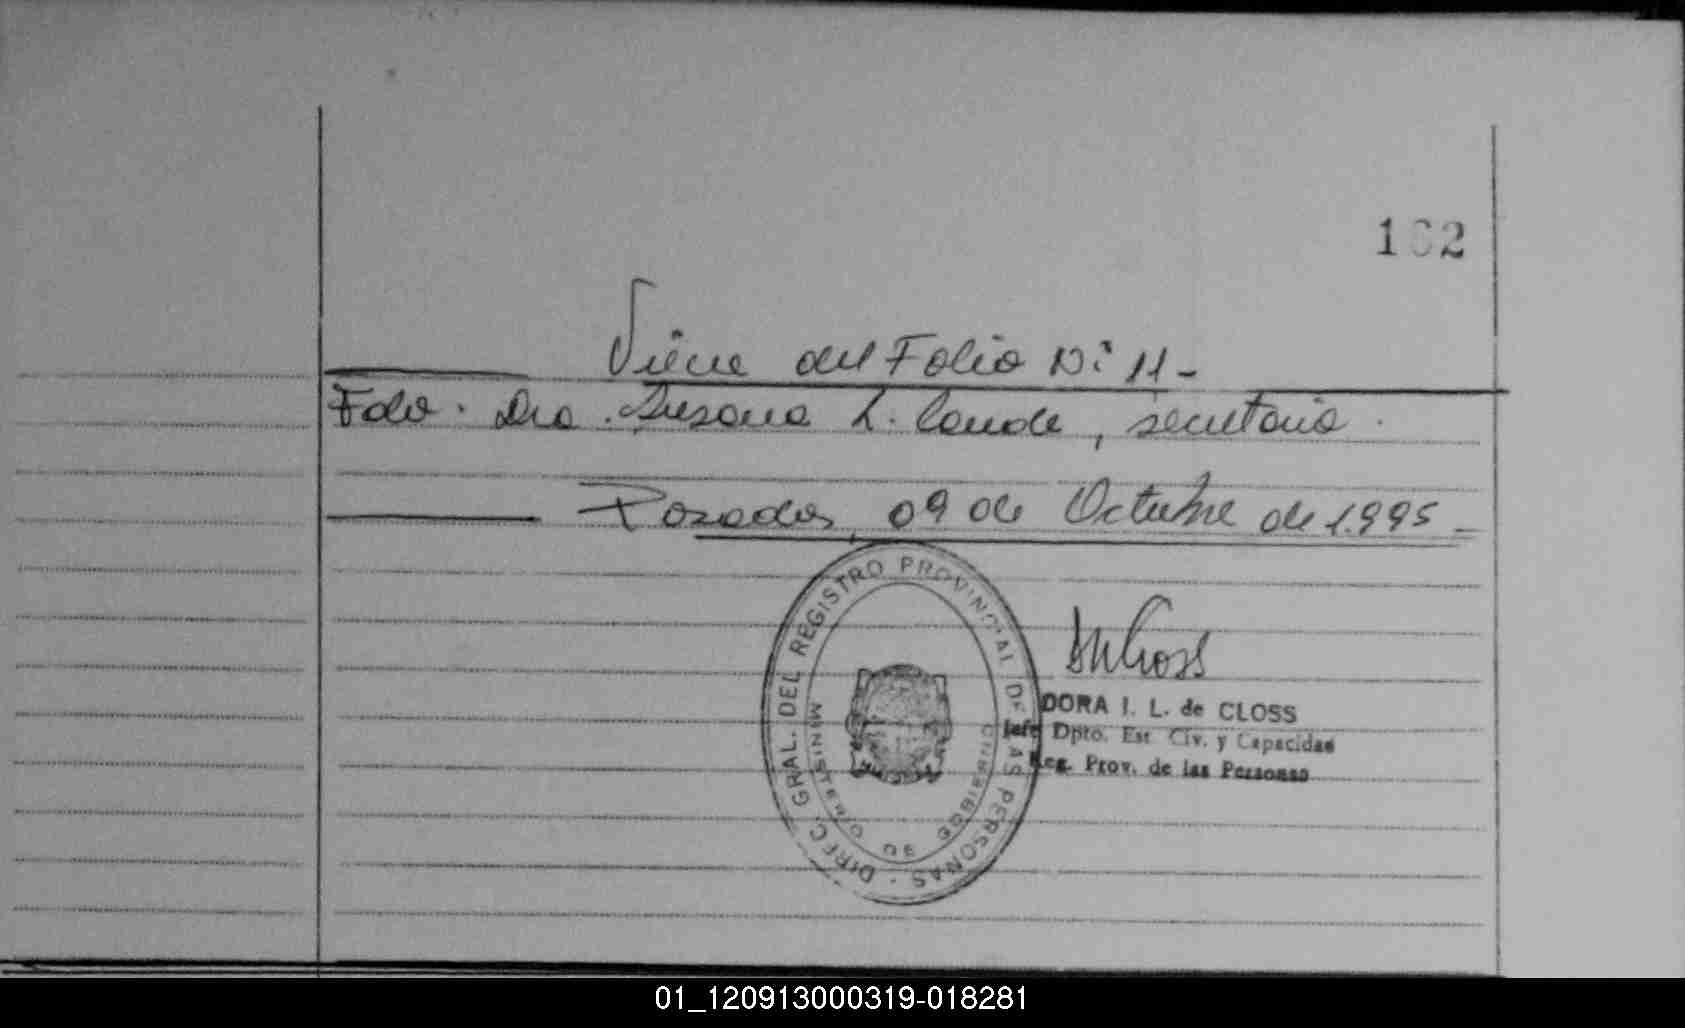 162
Viene del Folio Nº 11-
Fdo. Dra. Susana L. , secretaria.
Posadas, 09 de Octubre de 1.995-
DIREC. GRAL. DEL REGISTRO PROVINCIAL DE LAS PERSONAS
MINISTERIO DE GOBIERNO
DORA I. L. de CLOSS
Jefe Dpto. Est. Civ. y Capacidad
Reg. Prov. de las Personas
01_120913000319-018281